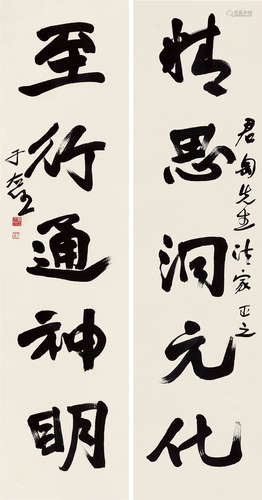 精思洞元化
君匋先生法家正之
至行通神明
于右任